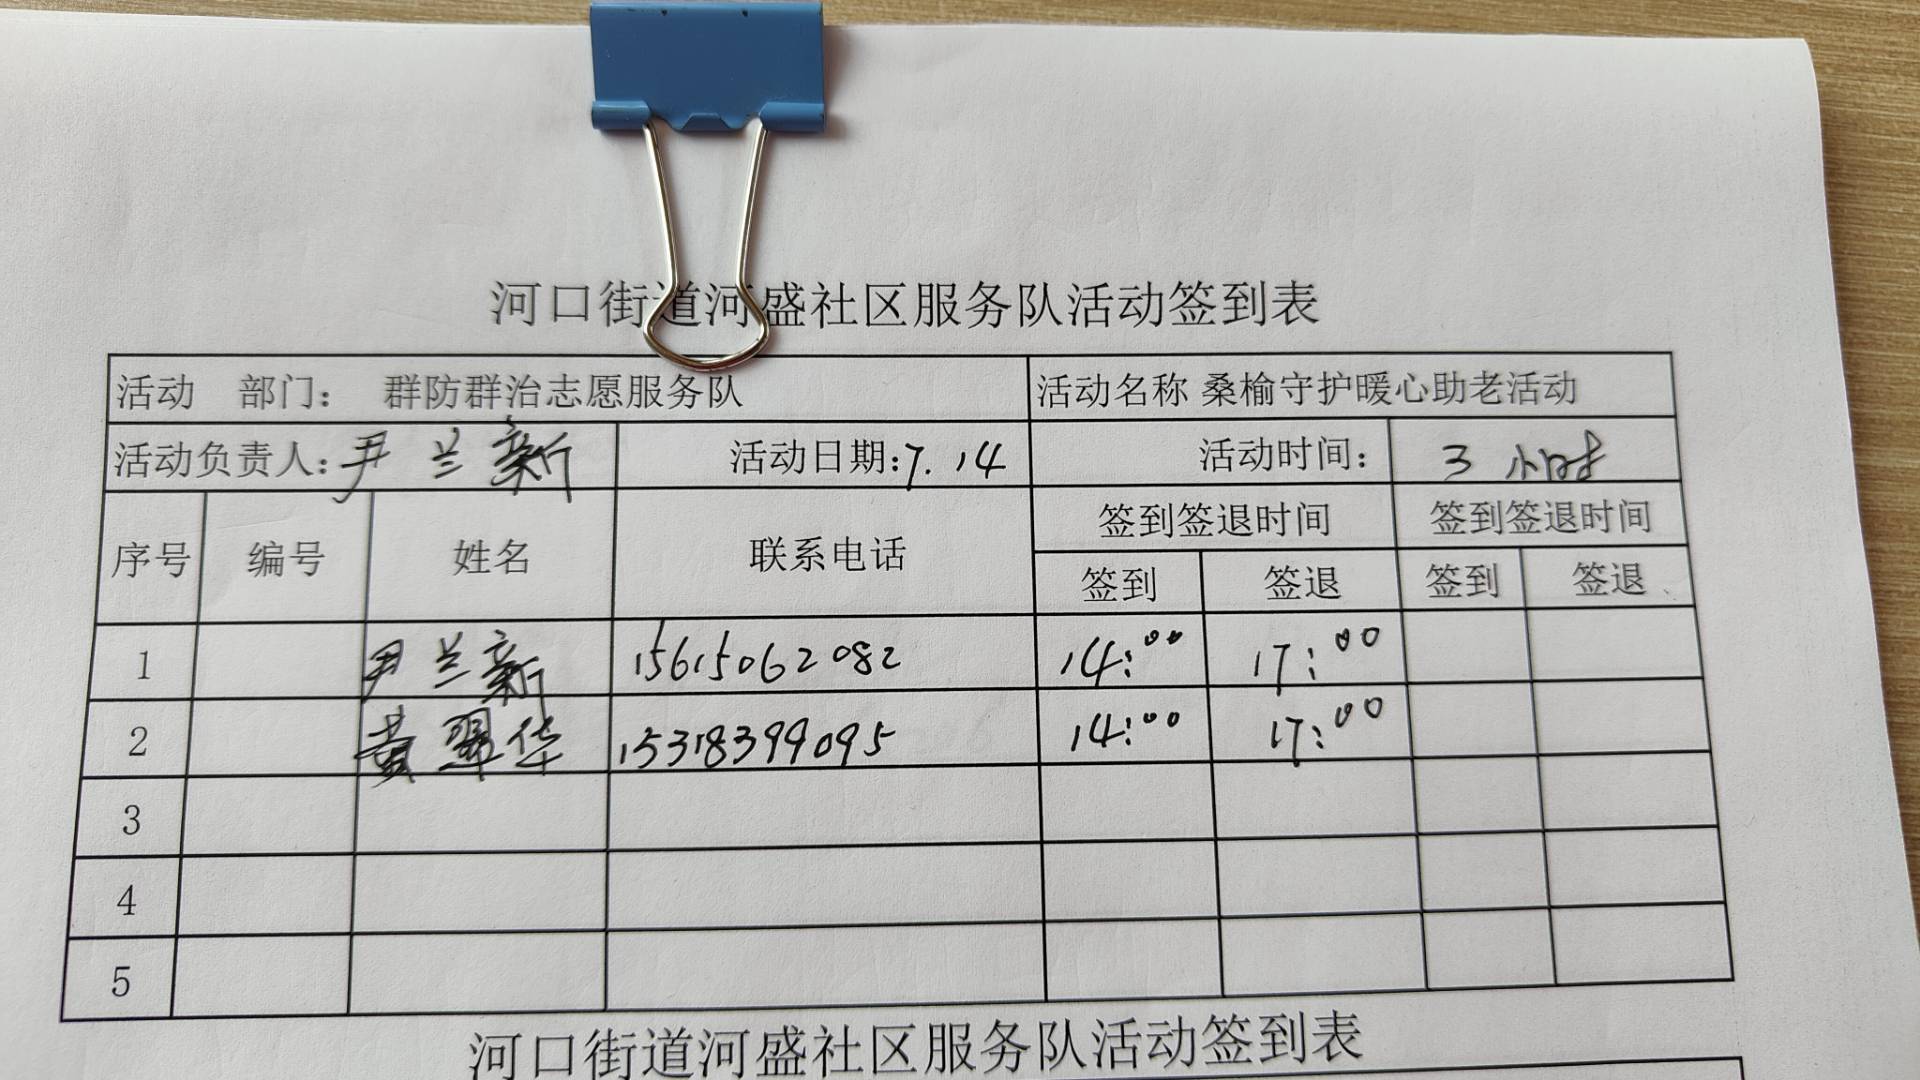 河口街道河盛社区服务队活动签到表
活动 部门： 群防群治志愿服务队 活动名称 桑榆守护暖心助老活动
活动负责人：尹兰新 活动日期：7.14 活动时间： 3小时
序号 编号 姓名 联系电话 签到签退时间 签到签退时间
签到 签退 签到 签退
1 尹兰新 15615062082 14:00 17:00
2 黄翠华 15318399095 14:00 17:00
3
4
5
河口街道河盛社区服务队活动签到表